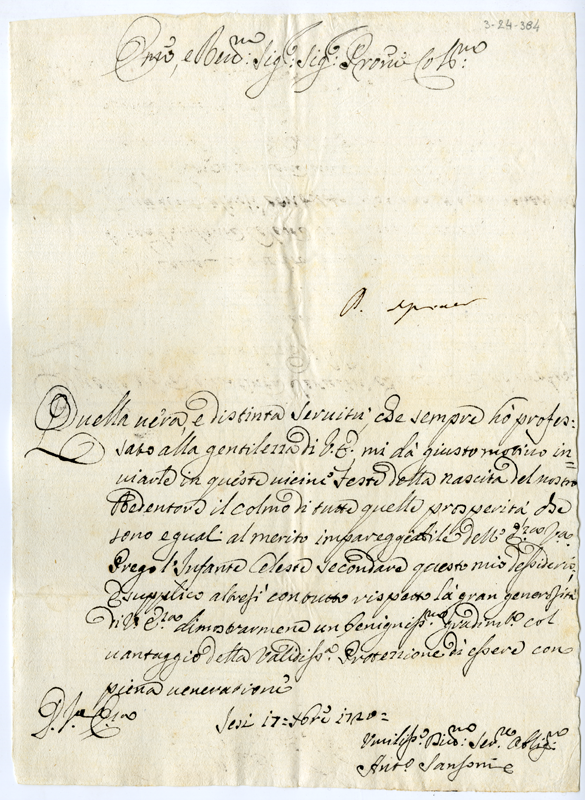 3-24-384
Em̃o, e Reu:mo Sig:r Sig:r Pron̄e Col:mo
R.
Quella uera, e distinta seruitù, che sempre hò profes:
sato alla gentilezza di V. E. mi dà giusto motiuo in=
uiarle in queste uicine Feste della nascita del nostro
Redentore il colmo di tutte quelle prosperità che
sono eguali al merito impareggiabile dell'
Prego l'Infante Celeste secondare questo mio desiderio,
E supplico altresì con tutto rispetto la gran generosità
di V. E.za dimostrarmene un benigniss:mo gradim:to col
uantaggio della Validiss:a Protezzione di essere con
piena ueneratione
D. V.ra E.za
Jesi 17= Xbre 1720=
Vmiliss:o Diu:mo Ser:re Oblig:mo
Ant:o Sansoni